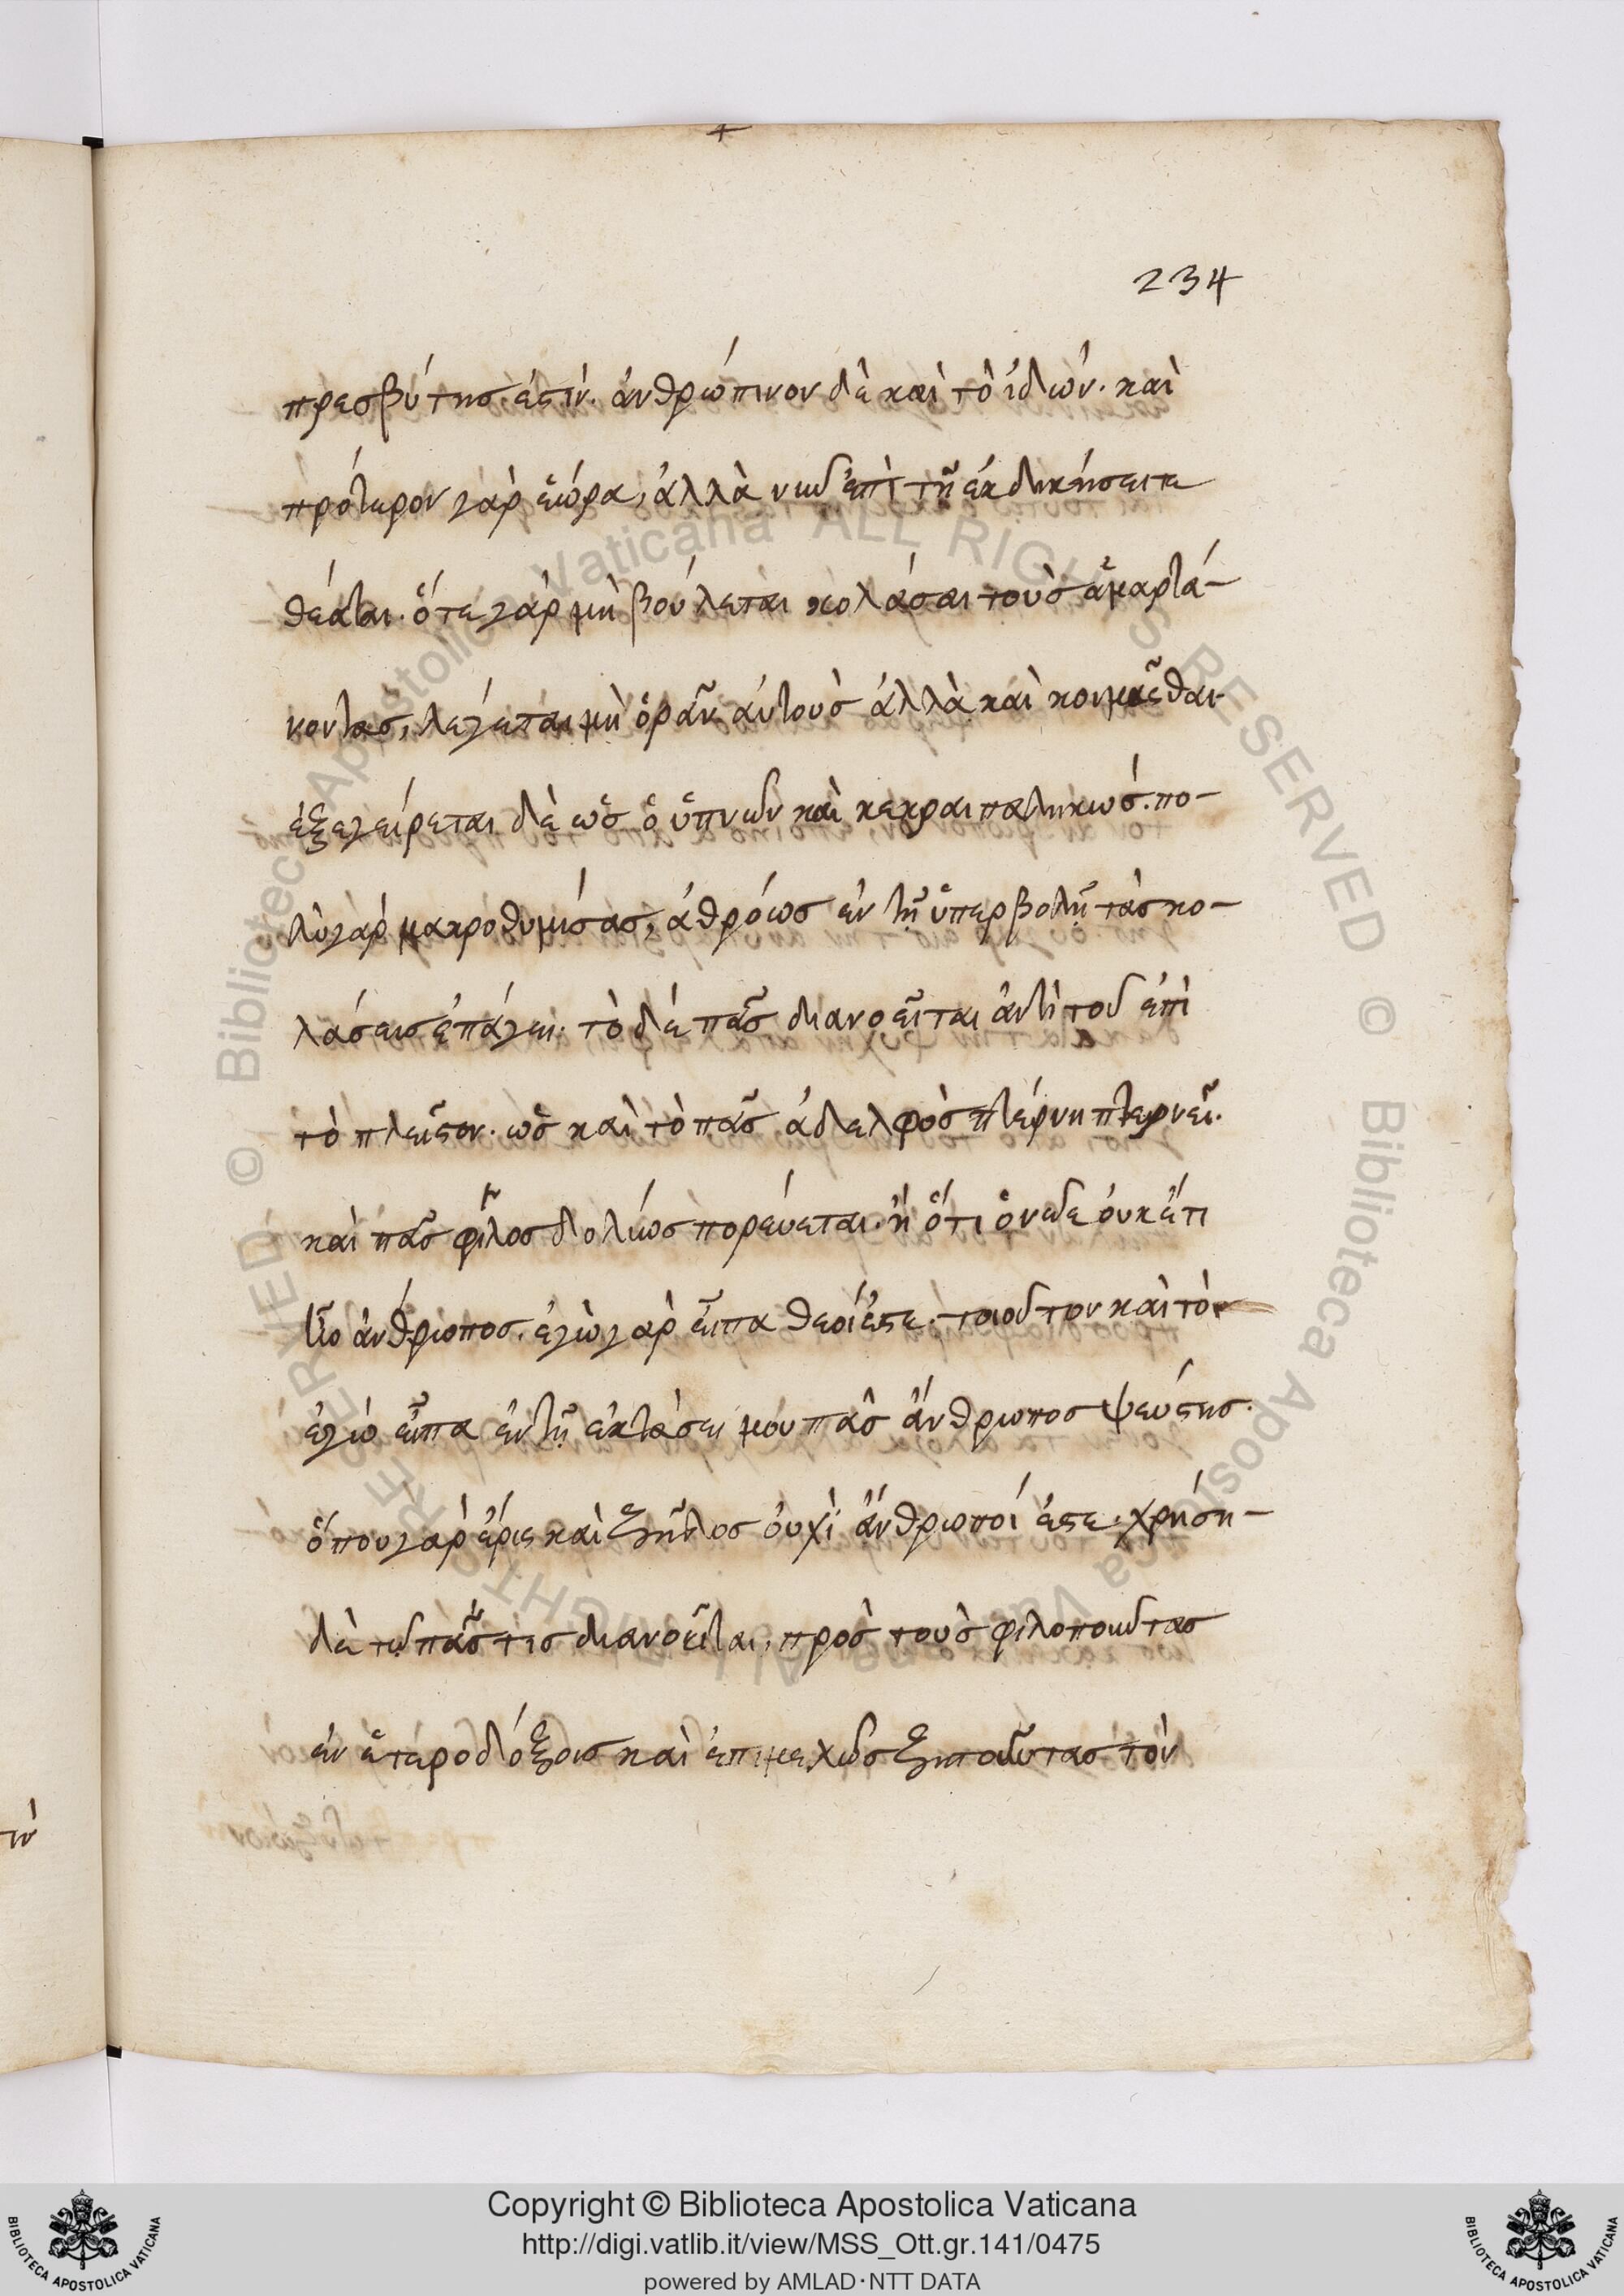 234
πρεσβύτης ἐστίν. ἀνθρώπινον δὲ καὶ τὸ ἰδών. καὶ
πρότερον γὰρ ἑώρα, ἀλλὰ νῦν ἐπὶ τῇ ἐκδικήσει τε
θέαται. ὅτε γάρ μὴ βούλεται κολάσαι τοὺς ἁμαρτά-
νοντας, λέγεται μὴ ὁρᾶν αὐτοὺς ἀλλὰ καὶ κοιμᾶσθαι
ἐξεγείρεται δὲ ὡς ὁ ὑπνῶν καὶ κεκραιπαληκώς. πο-
λὺ γάρ μακροθυμίσας, ἀθρόως ἐν τῇ ὑπερβολῇ τὰς κο-
λάσεις ἐπάγει. τὸ δὲ πᾶς διανοεῖται ἀντὶ τοῦ ἐπὶ
τὸ πλεῖστον. ὡς καὶ τὸ πᾶς ἀδελφὸς πτέρνῃ πτερνεῖ.
καὶ πᾶς φίλος δολίως πορεύεται. ἢ ὅτι ὁ νῶε οὐκ ἔτι
ἦν ἄνθρωπος. ἐγὼ γὰρ εἶπα θεοί ἐστε. τοιοῦτον καὶ τὸ
ἐγώ εἶπα ἐν τῇ ἐκστάσει μου πᾶς ἄνθρωπος ψεύστης.
ὅπου γὰρ ἔρις καὶ ζῆλος οὐχὶ ἄνθρωποί ἐστε. χρήσῃ
δὲ τῷ πᾶς τις διανοεῖται, πρὸς τοὺς φιλοποιοῦντας
ἐν ἑτεροδόξοις καὶ ἐπιμελῶς ζητοῦντας τὸν
Copyright © Biblioteca Apostolica Vaticana
http://digi.vatlib.it/view/MSS_Ott.gr.141/0475
powered by AMLAD·NTT DATA
BIBLIOTECA APOSTOLICA VATICANA
BIBLIOTECA APOSTOLICA VATICANA